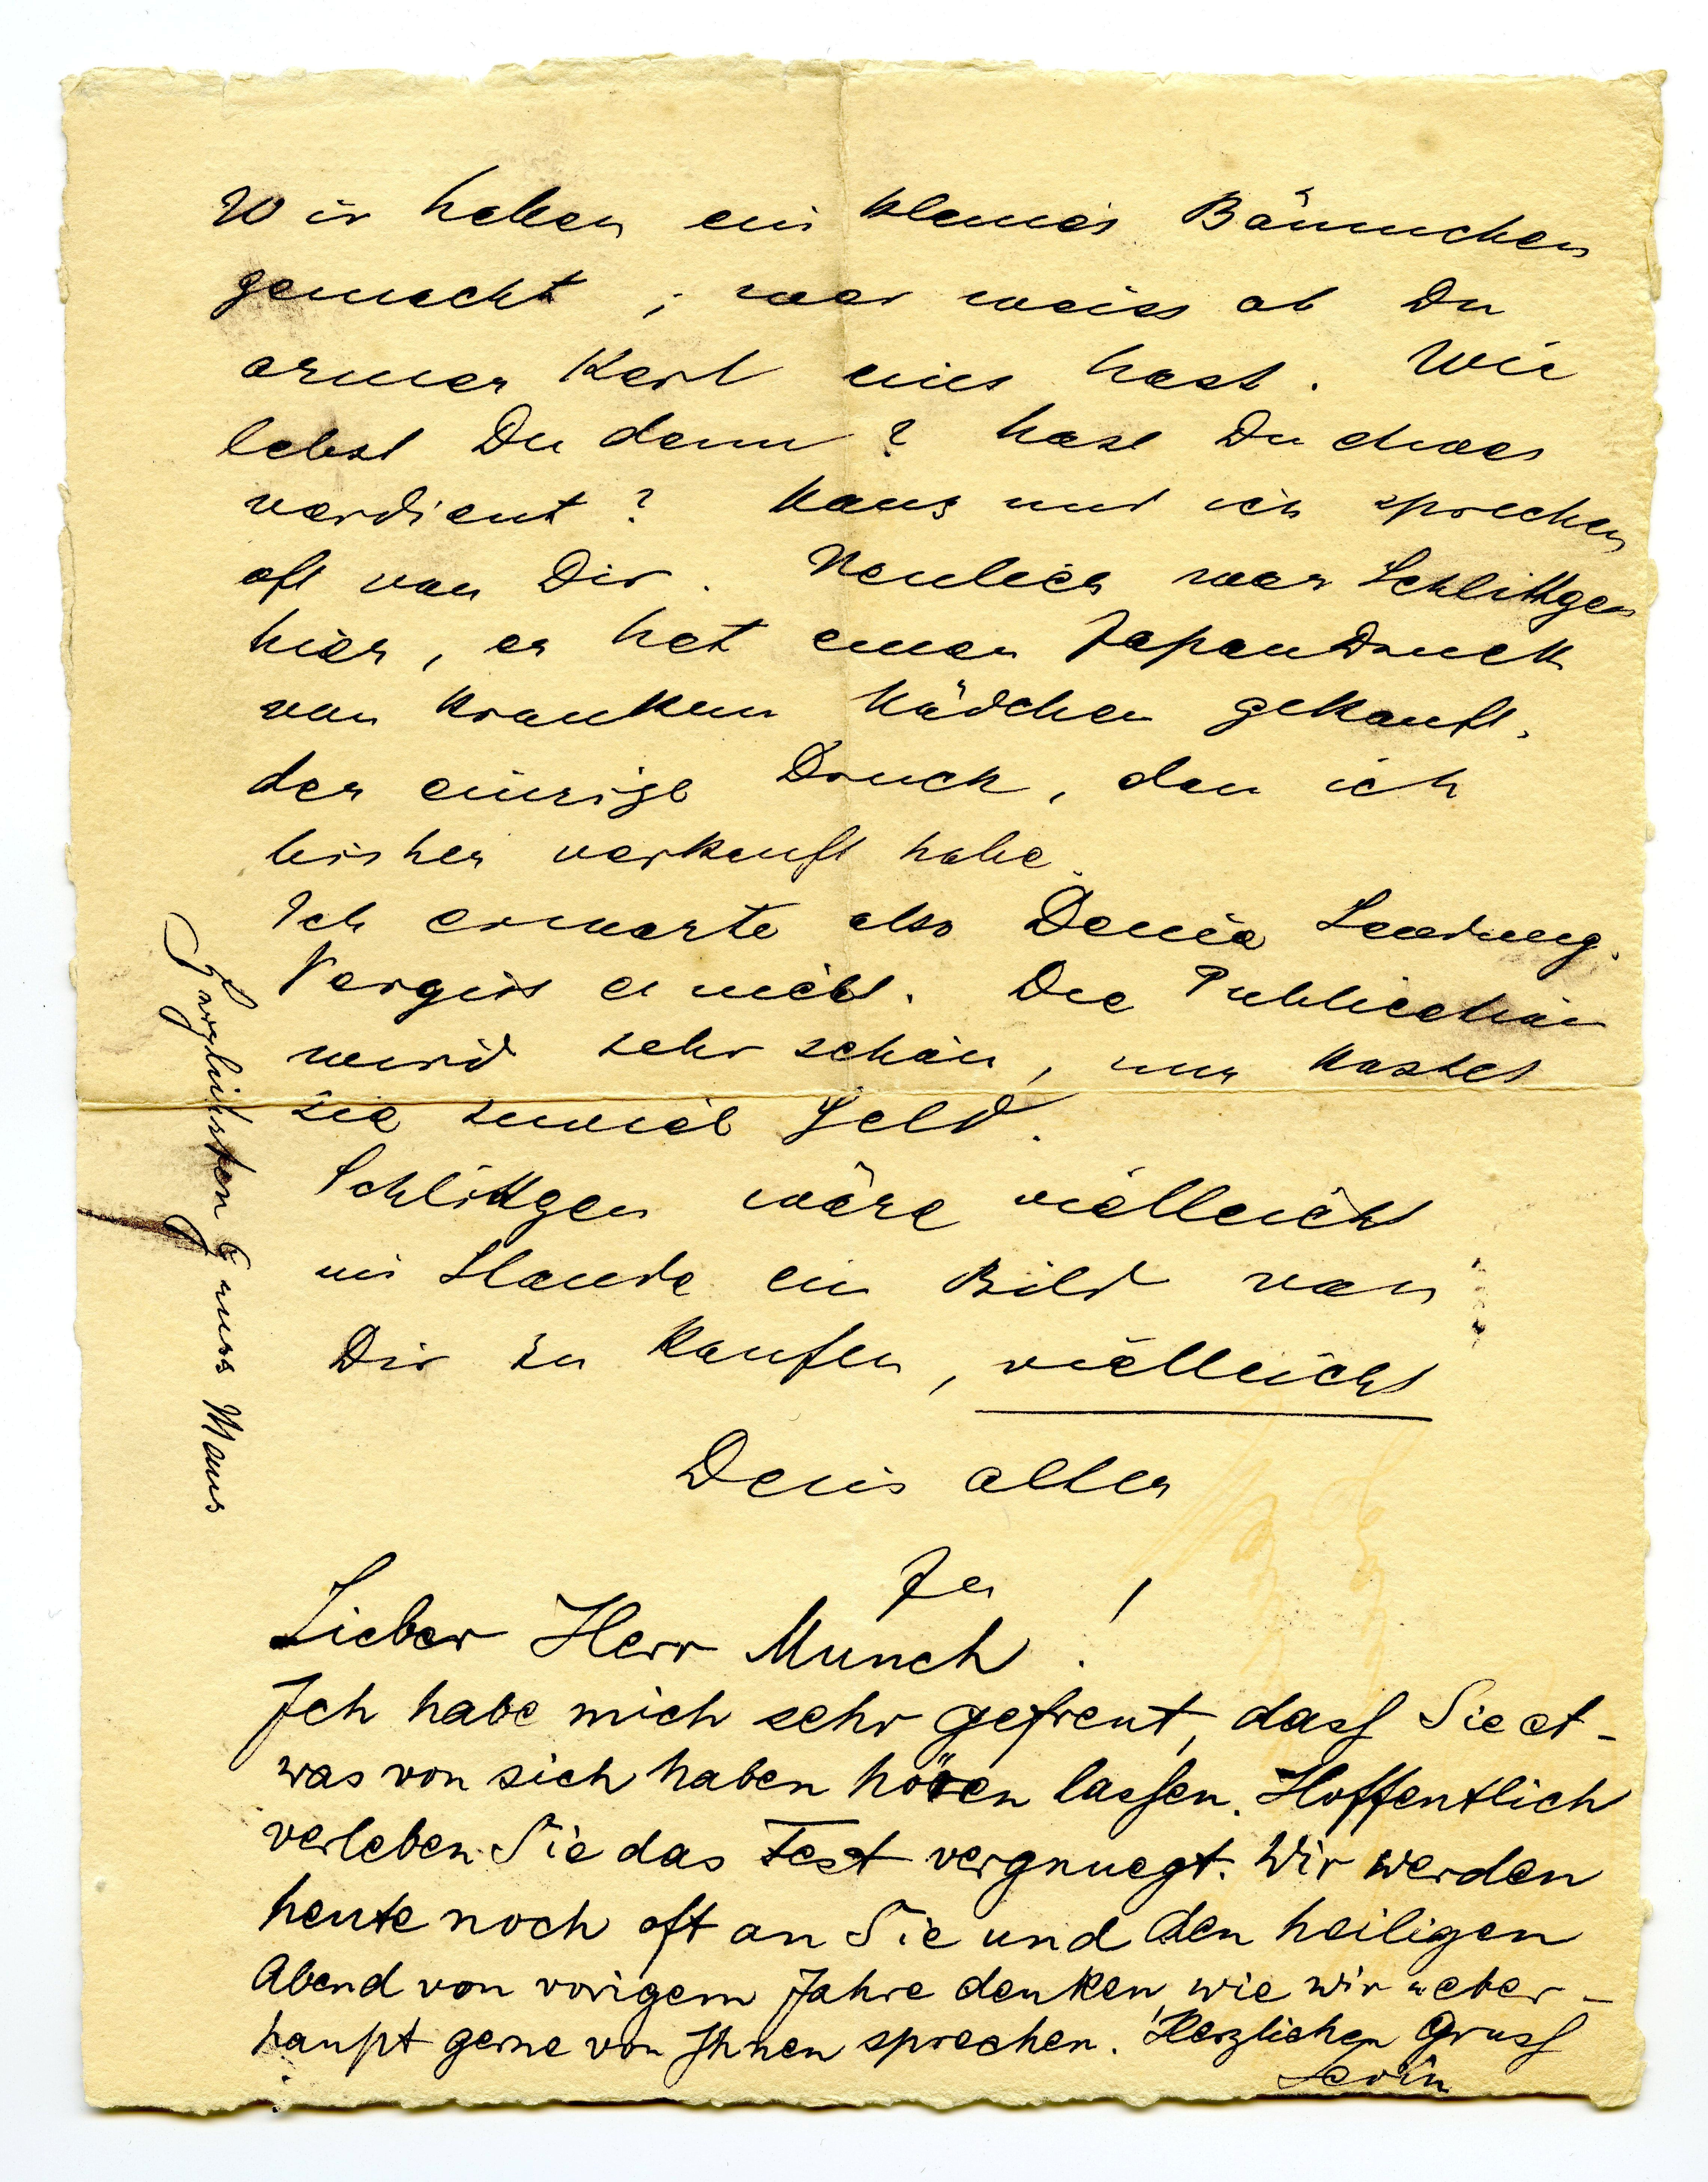 Wir haben ein kleines Bäumchen
gemacht, wer weiss ob Du
armer Kerl eins hast. Wie
lebst Du denn? hast Du etwas
verdient? Maus und ich sprechen
oft von Dir. Neulich war Schlittgen
hier, er hat einen Japandruck
vom kranken Mädchen gekauft,
der einzige Druck, den ich
bisher verkauft habe.
Ich erwarte also Deine Sendung.
Vergiss es nicht. Die Publication
wird sehr schön, nur kostet
sie zuviel Geld.
Schlittgen wäre vielleicht
im Stande ein Bild von
Dir zu kaufen, vielleicht
Dein alter
Ju!
Lieber Herr Munch!
Ich habe mich sehr gefreut, dass Sie et-
was von sich haben hören lassen. Hoffentlich
verleben Sie das Fest vergnuegt. Wir werden
heute noch oft an Sie und den heiligen
Abend von vorigem Jahre denken, wie wir ueber-
haupt gerne von Ihnen sprechen. Herzlichen Gruss
Levin
Herzlichsten Gruss Maus